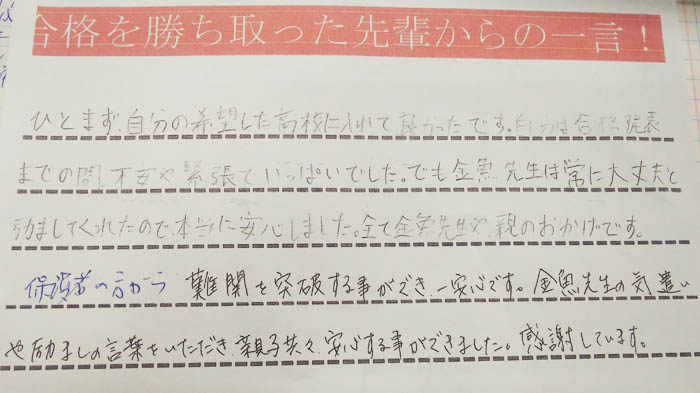 合格を勝ち取った先輩からの一言！
ひとまず、自分の希望した高校に入れて良かったです。自分は合格発表
までの間、不安や緊張でいっぱいでした。でも金魚先生は常に大丈夫と
励ましてくれたので、本当に安心しました。全て金魚先生や、親のおかげです。
保護者の方から 難関を突破する事ができ、一安心です。金魚先生の気遣い
や励ましの言葉をいただき、親子共々、安心する事ができました。感謝しています。